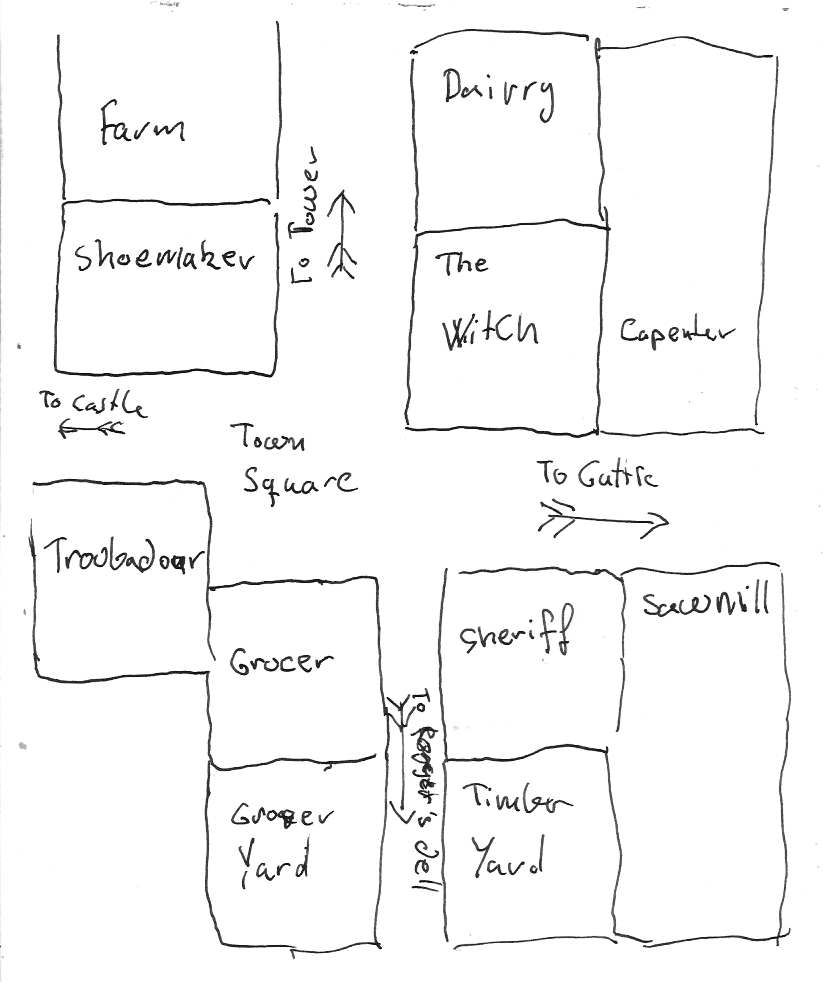 Farm
Dairry
To Tower
Shoemaker
The
Witch
Capenter
To Castle
Town
Square
To Guttle
Troubadour
Sheriff
Sawmill
Grocer
To
's dell
Grocer
Yard
Timber
Yard